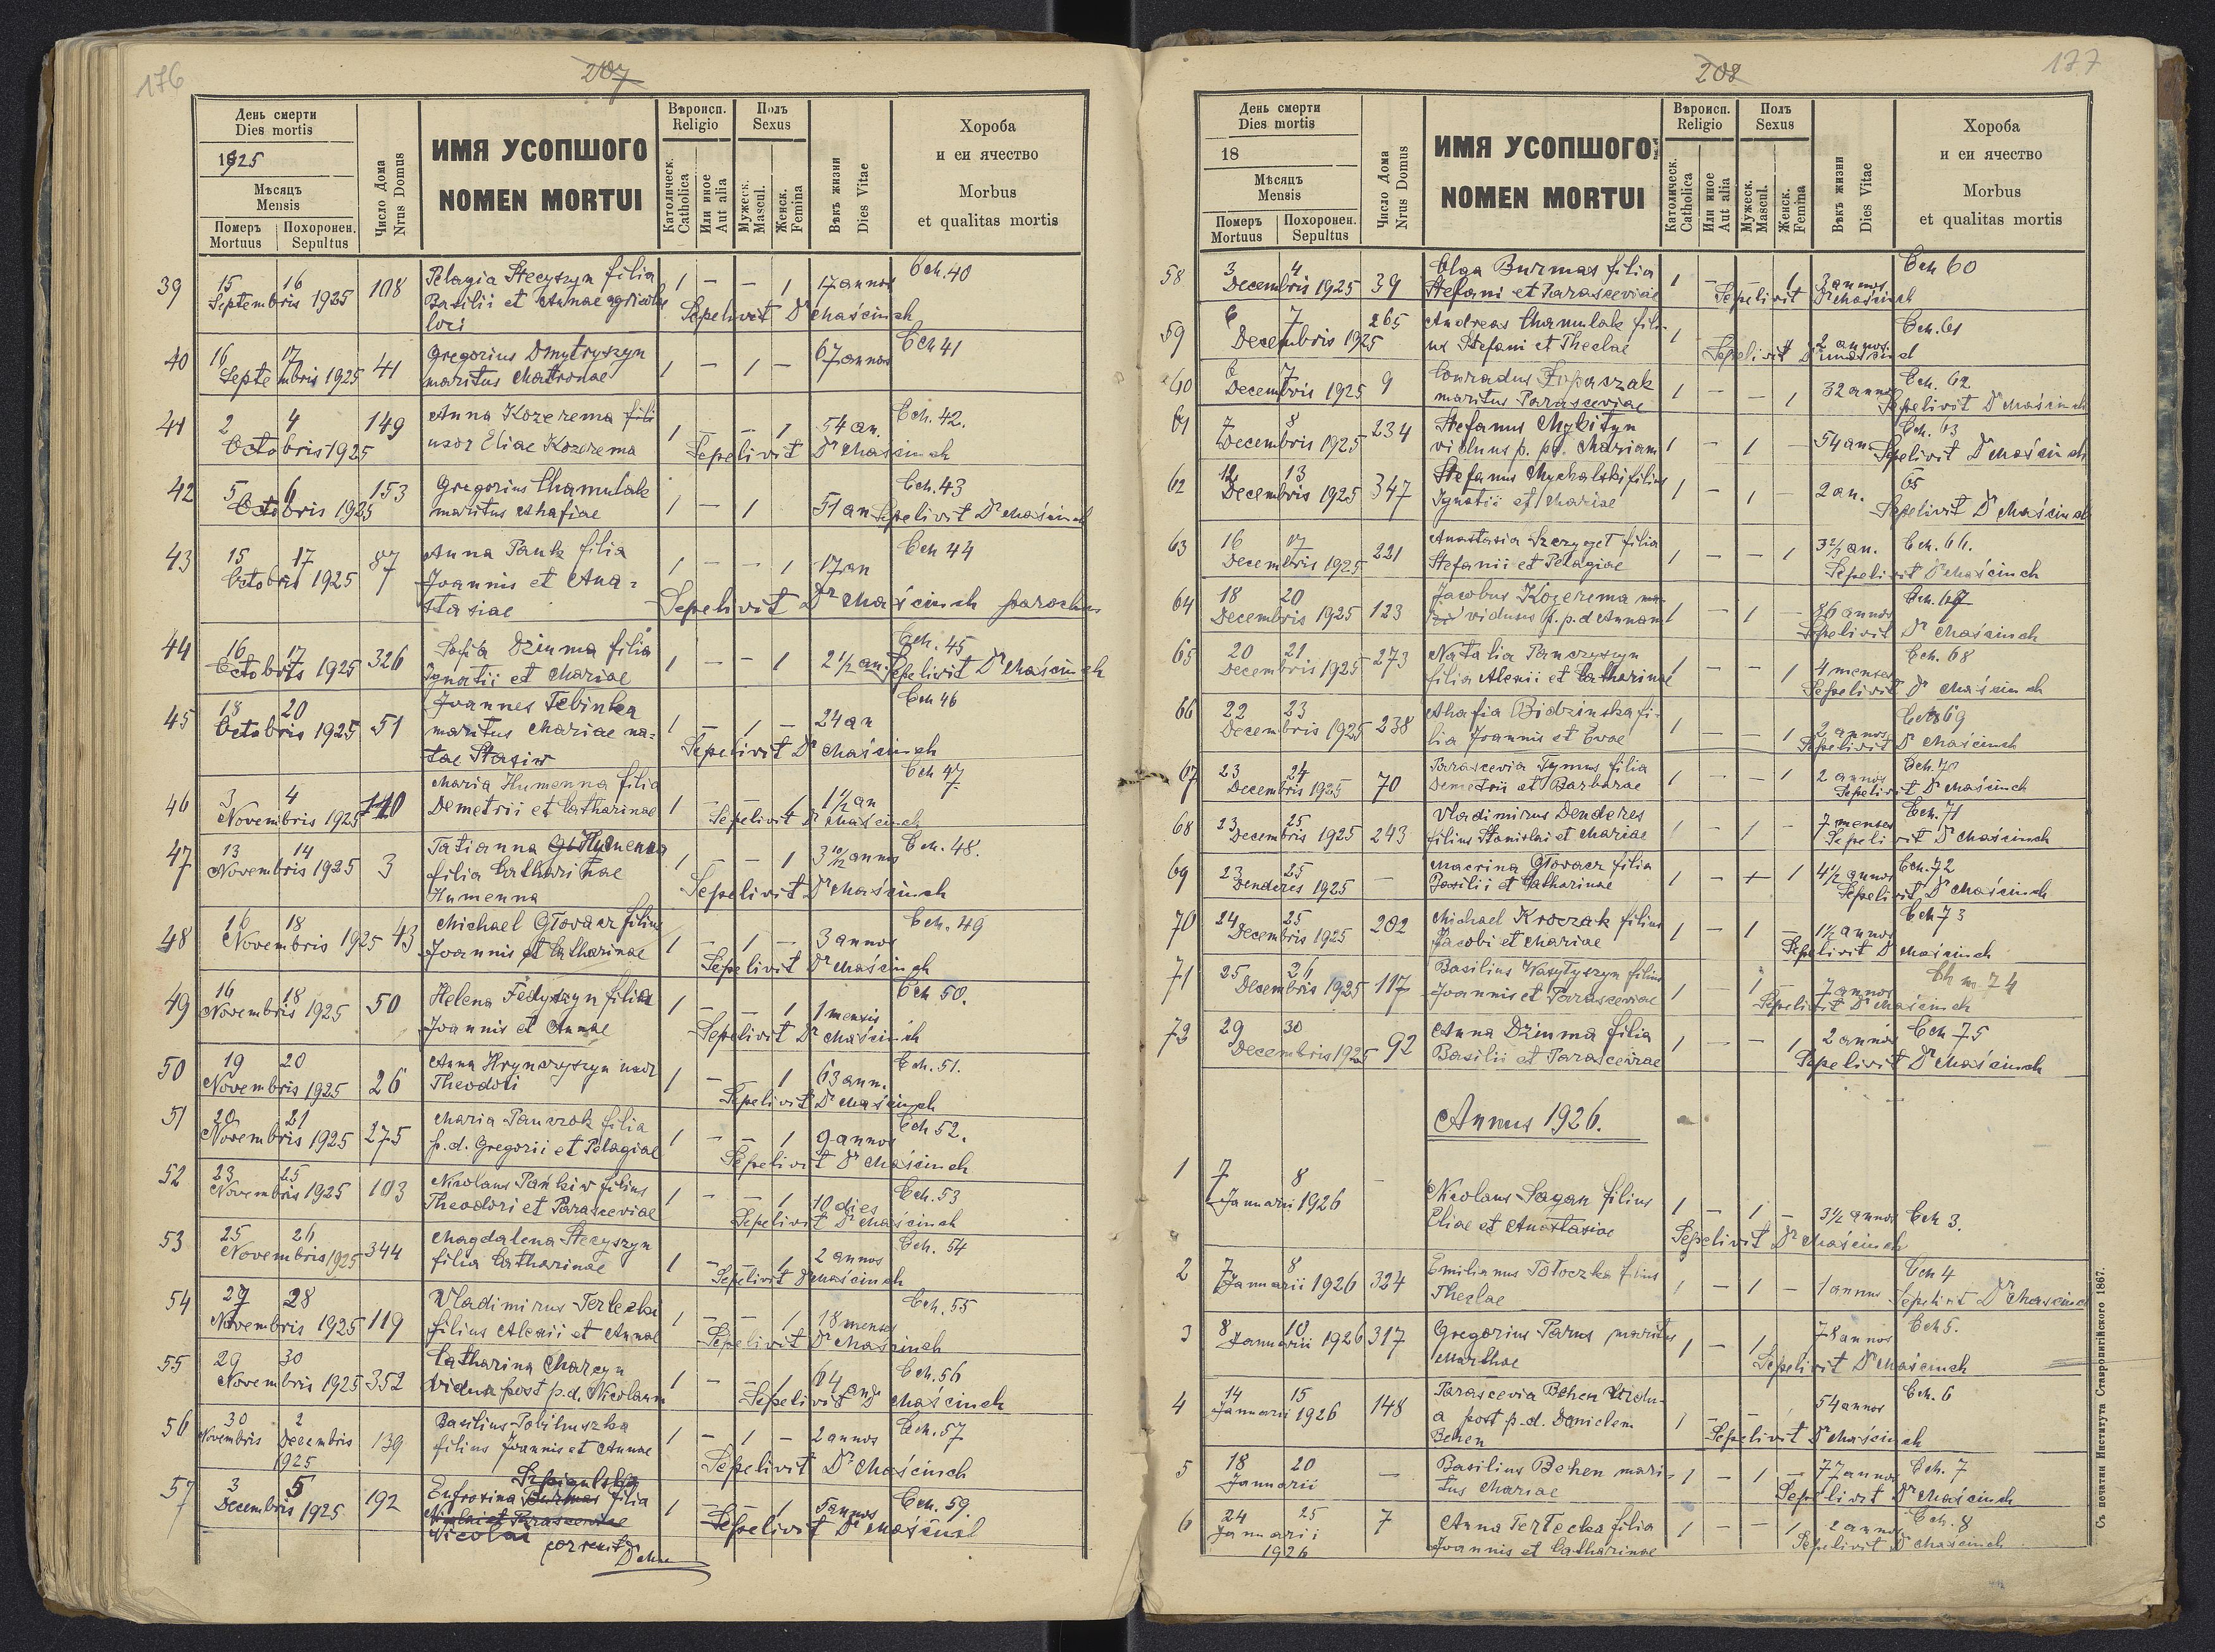 176
207
День смерти
Dies mortis
1925
Мѣсяцъ
Mensis
Померъ
Mortuus
Похоронен.
Sepultus
Число Дома
Nrus Domus
ИМЯ УСОПШОГО
NOMEN MORTUI
Вѣроисп.
Religio
Католическ.
Catholica
Или иное
Aut alia
Полъ
Sexus
Мужеск.
Mascul.
Женск.
Femina
Вѣкъ жизни
Dies Vitae
Хороба
и еи ячество
Morbus
et qualitas mortis
39 15 16 Septembris 1925 108 Pelagia Stecyszyn filia 1 – – 1 17 annos Cch. 40
Basilii et Annae agricolae
loci Sepelivit Dr Maścinch
40 16 17 Septembris 1925 41 Gregorius Dmytryszyn 1 – 1 – 67 annos Cch 41
maritus Matronae
41 2 4 Octobris 1925 149 Anna Kozerema fili 1 – – 1 54 an. Cch. 42.
uxor Eliae Kozerema Sepelivit Dr Maścinch
42 5 6 Octobris 1925 153 Gregorius Chamulak 1 – 1 51 an Cch. 43
maritus Ahafiae Sepelivit Dr Maścinch
43 15 17 Octobris 1925 87 Anna Pank filia 1 – – 1 17 an Cch 44
Joannis et Ana=
stasiae Sepelivit Dr Maścinch parochus
44 16 17 Octobris 1925 326 Sofia Dziuma filia 1 – – 1 2 1/2 an. Cch. 45
Ignatii et Mariae Sepelivit Dr Maścinch
45 18 20 Octobris 1925 51 Joannes Tebinka 1 – 1 – 24 an Cch 46
maritus Mariae na=
tae Stasiw Sepelivit Dr Maścinch
46 3 4 Novembris 1925 110 Maria Humenna filia 1 – – 1 1 1/2 an Cch 47
Demetrii et Catharinae Sepelivit Dr Maścinch
47 13 14 Novembris 1925 3 Tatianna Humenna 1 – – 1 3 10/12 annos Cch. 48.
filia Catharinae
Humenna Sepelivit Dr Maścinch
48 16 18 Novembris 1925 43 Michael Głowacz filius 1 – 1 – 3 annos Cch. 49
Joannis et Catharinae Sepelivit Dr Maścinch
49 16 18 Novembris 1925 50 Helena Fedyszyn filia 1 – – 1 1 mensis Cch 50.
Joannis et Annae Sepelivit Dr Maścinch
50 19 20 Novembris 1925 26 Anna Hrynczyszyn uxor 1 – 1 63 ann. Cch. 51.
Theodoti Sepelivit Dr Maścinch
51 20 21 Novembris 1925 275 Maria Panczak filia 1 – – 1 9 annos Cch 52.
p.d. Gregorii et Pelagiae Sepelivit Dr Maścinch
52 23 25 Novembris 1925 103 Nicolaus Pańkiw filius 1 – – 1 10 dies Cch. 53
Theodori et Parasceviae Sepelivit Dr Maścinch
53 25 26 Novembris 1925 344 Magdalena Stecyszyn 1 – – 1 2 annos Cch. 54
filia Catharinae Sepelivit Dr Maścinch
54 27 28 Novembris 1925 119 Vladimirus Terlecki 1 – – 1 18 menses Cch. 55
filius Alexii et Annae Sepelivit Dr Maścinch
55 29 30 Novembris 1925 352 Catharina Charczyn 1 – – 1 64 an Cch. 56
vidua post p.d. Nicolaum Sepelivit Dr Maścinch
56 30 Novembris 2 Decembris 1925 139 Basilius Pobihuszka 1 – 1 – 2 annos Cch. 57
filius Joannis et Annae Sepelivit Dr Maścinch
57 3 5 Decembris 1925 192 Eufrosina Burmas filia 1 – – 1 5 annos Cch. 59.
Parasceviae Sepelivit Dr Maścinch
Nicolai correxit
177
208
День смерти
Dies mortis
18
Мѣсяцъ
Mensis
Померъ
Mortuus
Похоронен.
Sepultus
Число Дома
Nrus Domus
ИМЯ УСОПШОГО
NOMEN MORTUI
Вѣроисп.
Religio
Католическ.
Catholica
Или иное
Aut alia
Полъ
Sexus
Мужеск.
Mascul.
Женск.
Femina
Вѣкъ жизни
Dies Vitae
Хороба
и еи ячество
Morbus
et qualitas mortis
58 3 4 Decembris 1925 39 Olga Burmas filia 1 – – 1 3 annos Cch 60
Stefani et Parasceviae Sepelivit Dr Maścinch
59 6 7 Decembris 1925 265 Andreas Chamulak fili- 1 2 annos Cch. 61
us Stefani et Theclae Sepelivit Dr Maścinch
60 6 7 Decembris 1925 9 Conradus Łopaszak 1 – – 1 32 annos Cch. 62
maritus Parasceviae Sepelivit Dr Maścinch
61 7 8 Decembris 1925 234 Stefanus Mykityn 1 – 1 – 54 an Cch. 63
viduus p. pd. Mariam Sepelivit Dr Maścinch
62 12 13 Decembris 1925 347 Stefanus Mychalski filius 1 – 1 – 2 an. 65
Ignatii et Mariae Sepelivit Dr Maścinch
63 16 17 Decembris 1925 221 Anastasia Szczygeł filia 1 – – 1 3 2/3 an. Cch. 66.
Stefanii et Pelagiae Sepelivit Dr Maścinch
64 18 20 Decembris 1925 123 Jacobus Kozerema ma- 1 – 1 – 86 annos Cch. 67
viduus p. p.d Annam Sepelivit Dr Maścinch
65 20 21 Decembris 1925 273 Natalia Panczyszyn 1 – – 1 4 menses Cch. 68
filia Alexii et Catharinae Sepelivit Dr Maścinch
66 22 23 Decembris 1925 238 Ahafia Bidzinska fi- 1 – – 1 2 annos Cch 69
lia Joannis et Evae Sepelivit Dr Maścinch
67 23 24 Decembris 1925 70 Parascevia Tymus filia 1 – – 1 2 annos Cch. 70
Demetrii et Barbarae Sepelivit Dr Maścinch
68 23 25 Decembris 1925 243 Vladimirus Denderes 1 – 1 – 7 menses Cch. 71
filius Stanislai et Mariae Sepelivit Dr Maścinch
69 23 25 Denderes 1925 – Macrina Głowacz filia 1 – + 1 4 1/2 annos Cch. 72
Basilii et Catharinae Sepelivit Dr Maścinch
70 24 25 Decembris 1925 202 Michael Kroczak filius 1 – 1 – 1 1/2 annos Cch 73
Jacobi et Mariae Sepelivit Dr Maścinch
71 25 26 Decembris 1925 117 Basilius Wasyłyszyn filius 1 – 1 – 7 annos 74
Joannis et Parasceviae Sepelivit Dr Maścinch
73 29 30 Decembris 1925 92 Anna Dziuma filia 1 – – 1 2 annos Cch 75
Basilii et Parasceviae Sepelivit Dr Maścinch
Annus 1926.
1 7 8 Januarii 1926 – Nicolaus Sagan filius 1 – 1 – 3 1/2 annos Cch 3.
Eliae et Anastasiae Sepelivit Dr Maścinch
2 7 8 Januarii 1926 324 Emilianus Potoczka filius 1 – 1 – 1 annus Cch 4
Theclae Sepelivit Dr Maścinch
3 8 10 Januarii 1926 317 Gregorius Parus maritus 1 – 1 78 annos Cch 5.
Marthae Sepelivit Dr Maścinch
4 14 15 Januarii 1926 148 Parascevia Behen vidu- 1 – – 54 annos Cch. 6
a post p.d. Danielem
Behen Sepelivit Dr Maścinch
5 18 20 Januarii – Basilius Behen mari- 1 – 1 – 77 annos Cch. 7
tus Mariae Sepelivit Dr Maścinch
6 24 25 Januarii 1926 7 Anna Terlecka filia 1 – – 1 2 annos Cch. 8
Joannis et Catharinae Sepelivit Dr Maścinch
Съ печатни Института Ставропигійского 1867.